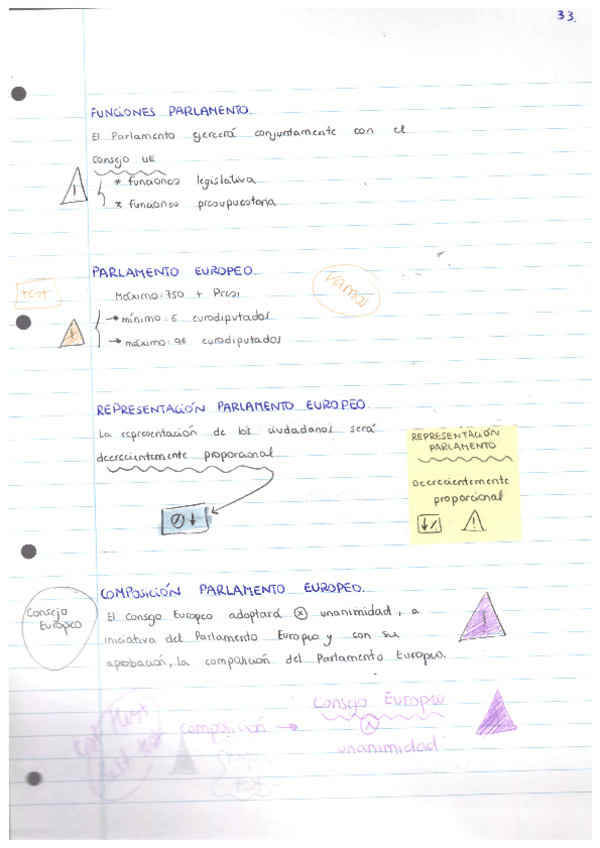 33.
FUNCIONES PARLAMENTO.
El Parlamento ejercerá conjuntamente con el
Consejo UE
* funciones legislativa
* funciones presupuestaria
PARLAMENTO EUROPEO.
test
Máximo: 750 + Presi
Vamos
→ mínimo: 6 eurodiputados
→ máximo: 96 eurodiputados
REPRESENTACIÓN PARLAMENTO EUROPEO.
La representación de los ciudadanos será
decrecientemente proporcional
REPRESENTACIÓN
PARLAMENTO
Decrecientemente
proporcional
COMPOSICIÓN PARLAMENTO EUROPEO.
Consejo
Europeo
El Consejo Europeo adoptará x unanimidad, a
iniciativa del Parlamento Europeo y con su
aprobación, la composición del Parlamento Europeo.
composición → Consejo Europeo
x
unanimidad